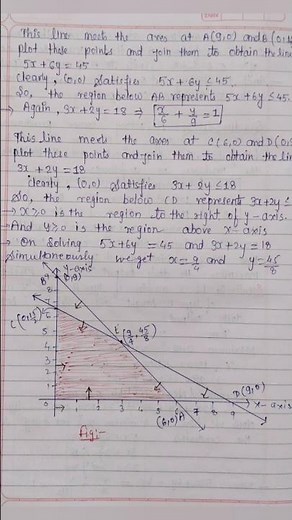 This line meets the axes at A(9,0) and B(0,
plot these points and join them to obtain the line
5x+6y=45
Clearly, (0,0) satisfies 5x+6y≤45.
So, the region below AB represents 5x+6y≤45.
→ Again, 3x+2y=18 ⇒ [x/6 + y/9 = 1]
This line meets the axes at C(6,0) and D(0,
plot these points and join them to obtain the line
3x+2y=18
Clearly, (0,0) satisfies 3x+2y≤18
So, the region below CD represents 3x+2y≤
→ x≥0 is the region to the right of y-axis.
→ And y≥0 is the region above x-axis
→ On solving 5x+6y=45 and 3x+2y=18
simultaneously we get x=9/4 and y=45/8
y-axis
8
7
6
5
4
3
2
1
(9/4, 45/8)
D(9,0)
1 2 3 4 5 6 7 8 9 x-axis
(6,0) A
Fig:-